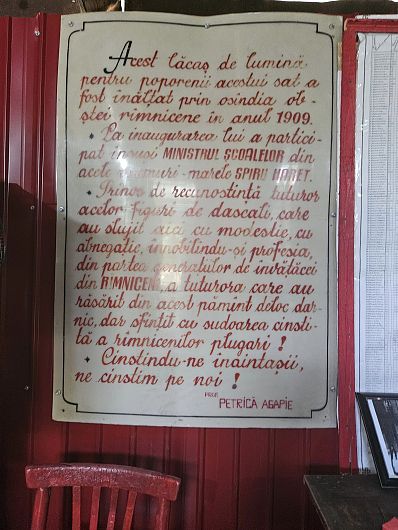 Acest lăcaș de lumină
pentru poporenii acestui sat a
fost înălțat prin osîndia ob-
ștei rîmnicene în anul 1909.
La inaugurarea lui a partici-
pat însuși MINISTRUL ȘCOALELOR din
acele - marele SPIRU HARET.
Prinos de recunoștință tuturor
acelor figuri de dascăli, care
au slujit aici cu modestie, cu
abnegație, înnobilîndu-și profesia,
din partea generațiilor de învățăcei
din RIMNICENI, a tuturora care au
răsărit din acest pămînt deloc dar-
nic, dar sfințit cu sudoarea cinsti-
tă a rîmnicenilor plugari !
Cinstindu-ne înaintașii,
ne cinstim pe noi !
PROF.
PETRICĂ AGAPIE